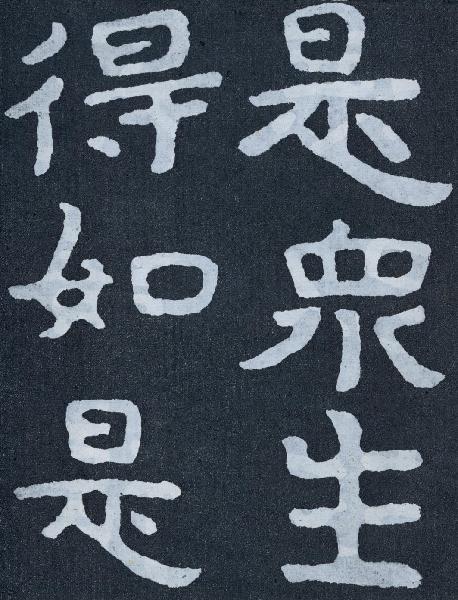 是衆生
得如是